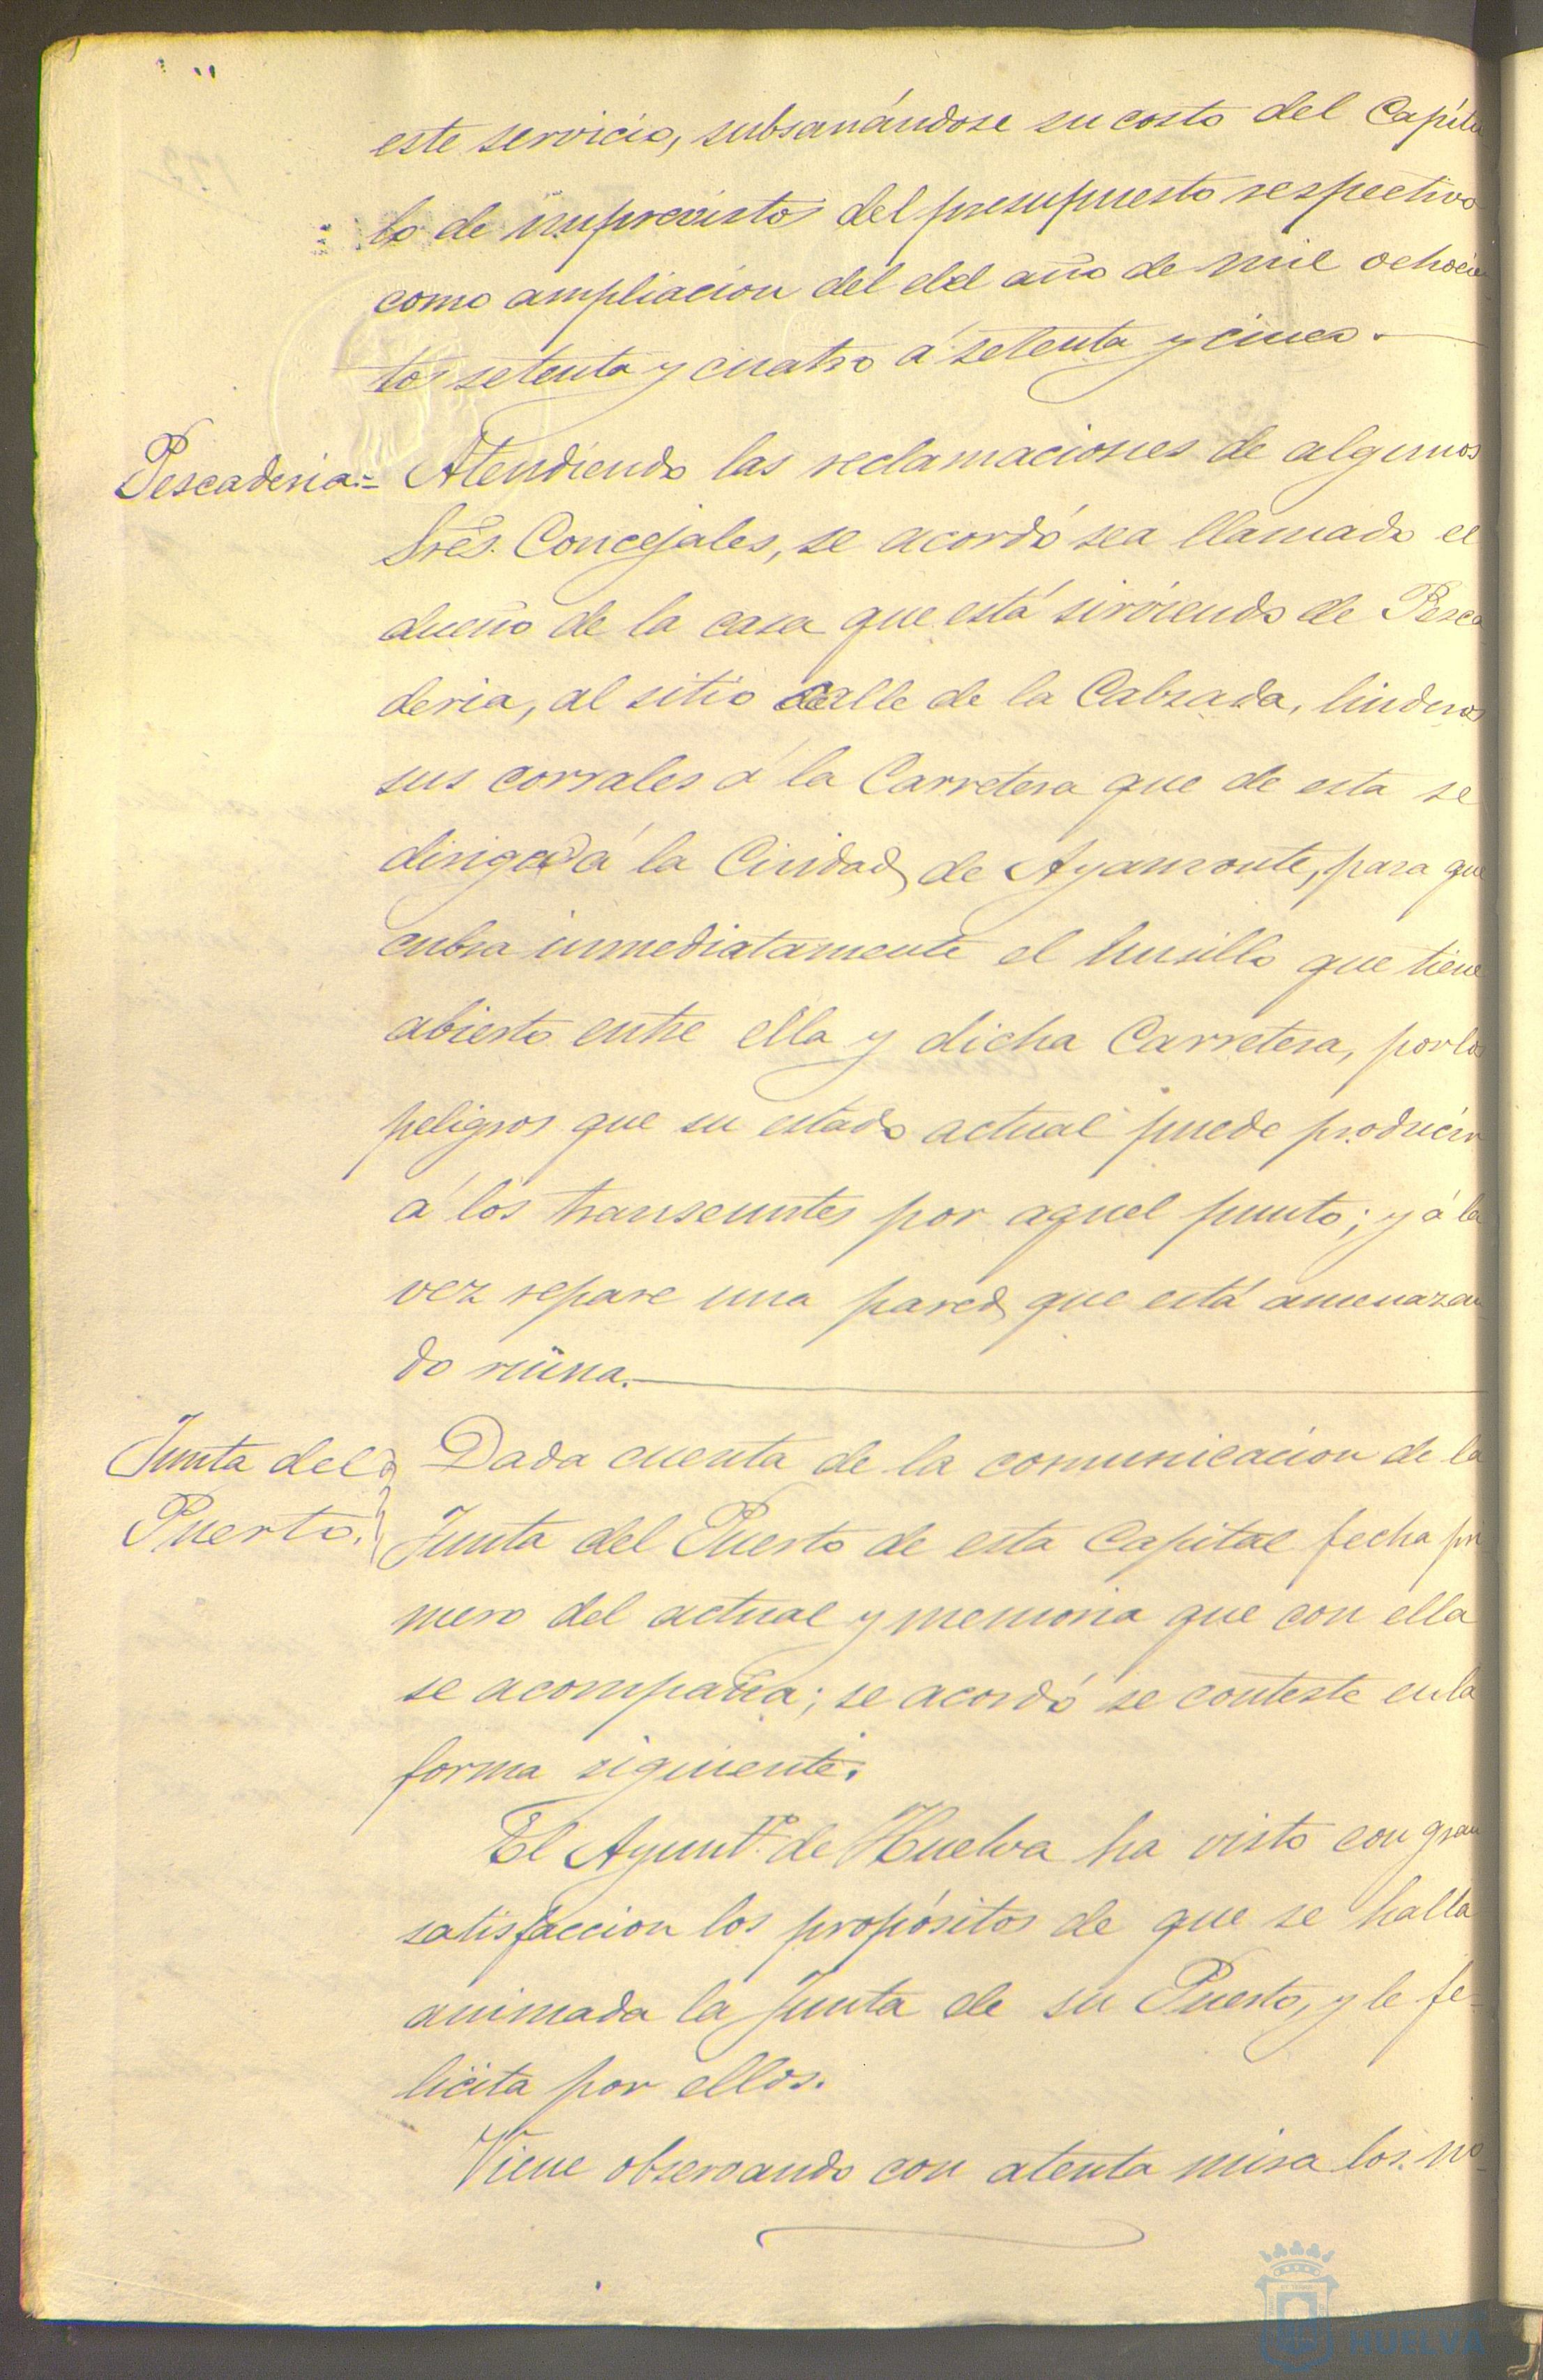 este servicio, subsanándose su costo del Capítu
lo de imprevistos del presupuesto respectivo
como ampliacion del del año de mil ochocien
tos setenta y cuatro á setenta y cinco.
Pescaderia.= Atendiendo las reclamaciones de algunos
Sres. Concejales, se acordó sea llamado el
dueño de la casa que está sirviendo de Pesca
deria, al sitio calle de la Calzada, linderos
sus corrales á la Carretera que de esta se
dirige á la Ciudad de Ayamonte, para que
cubra inmediatamente el husillo que tiene
abierto entre ella y dicha Carretera, por los
peligros que su estado actual puede producir
á los transeuntes por aquel punto; y á la
vez repare una pared que está amenazan
do ruina.
Junta del Dada cuenta de la comunicacion de la
Puerto. Junta del Puerto de esta Capital fecha pri
mero del actual y memoria que con ella
se acompaña; se acordó se conteste en la
forma siguiente.
El Ayunt.º de Huelva ha visto con gran
satisfaccion los propósitos de que se halla
animada la Junta de su Puerto, y le fe-
licita por ellos.
Viene observando con atenta mira los no-
HUELVA